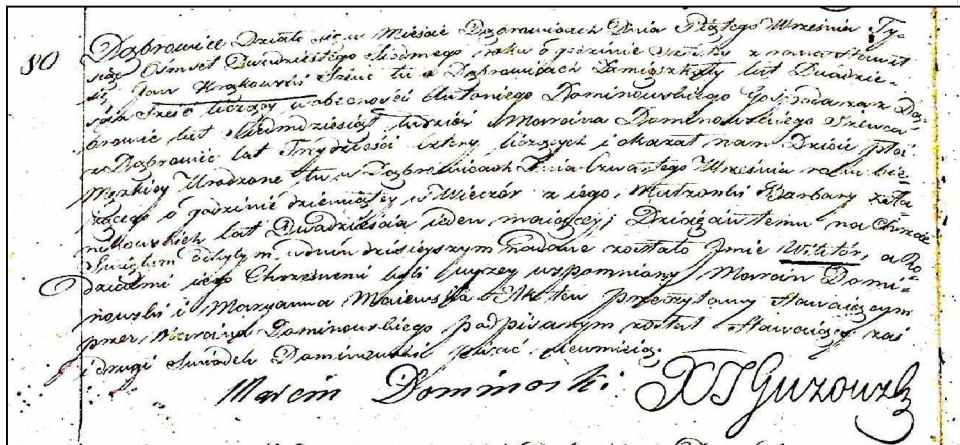 80 Dąbrowice Działo się w Mieście Dąbrowicach Dnia Piątego Września Ty=
siąc Ośmset Dwudziestego Siodmego roku o godzinie
Jan Krakowski Szewc tu w Dąbrowicach Zamieszkały lat Dwadzie=
ścia Sześć liczący w obecności Antoniego Dominowskiego Gospodarza z Dą=
browic lat Siedmdziesiąt tudzież Marcina Dominowskiego Szewca
z Dąbrowic lat Trzydzieści cztery liczących i okazał nam Dziecie płci
Męzkiey Urodzone tu w Dąbrowicach Dnia Czwartego Września roku bie=
żącego o godzinie dziewiątey w Wieczór z iego Małżonki Barbary
lat Dwadzieścia ieden maiącey; Dziecięciu temu na Chrzcie
Świętym odbytym w dniu dzisieyszym nadane zostało Jmie Wiktór, a Ro=
dzicami iego Chrzesnemi byli wyzey wspomniany Marcin Domi=
nowski i Maryanna Maiewska Akt ten przeczytany Stawaiącym
przez Marcina Dominowskiego podpisanym został Stawaiący zaś
i drugi Swiadek Dominowski pisać nieumieią.
Marcin Dominoski